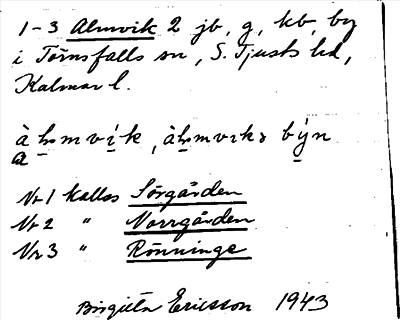 1-3 Almvik 2 jb, g, kb, by
i Törnsfalls sn, S. Tjusts hd,
Kalmar l.
Nr 1 kallas Sörgården
Nr 2 " Norrgården
Nr 3 " Rönninge
Birgitta Ericsson 1943